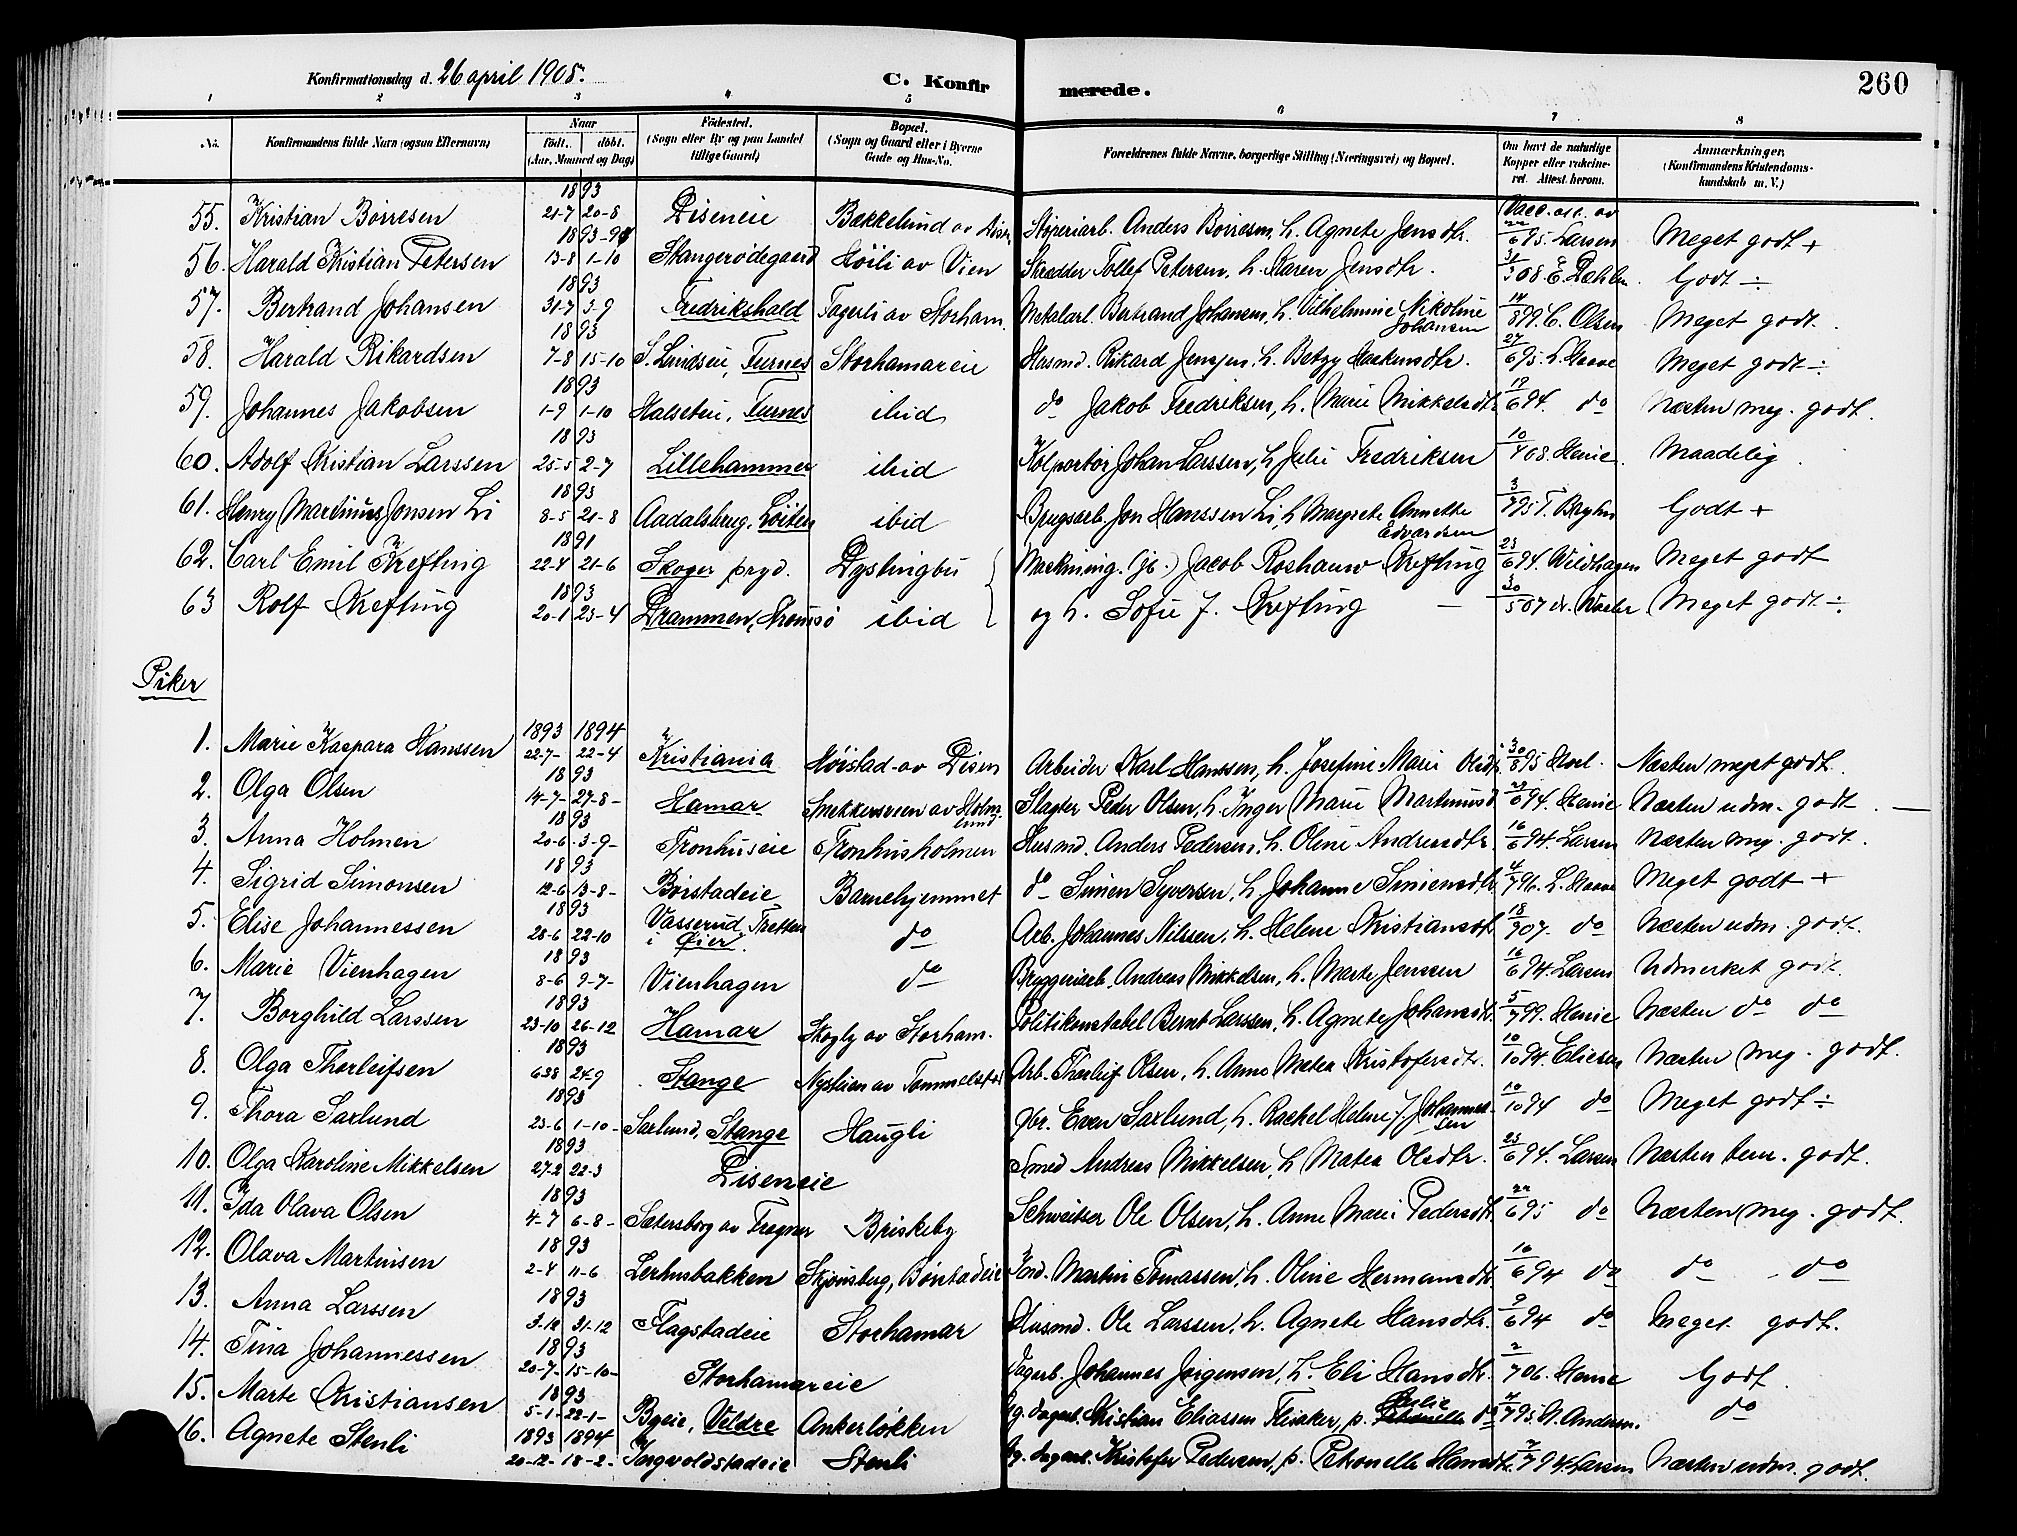 Konfirmationsdag d. 26 april 1908.
C. Konfirmerede.
260
1 2 3 4 5 6 7 8
No. Konfirmandens fulde Navn (ogsaa Efternavn) Naar født. døbt. (Aar, Maaned og Dag) Fødested. (Sogn eller By og paa Landet tillige Gaard) Bopæl. (Sogn og Gaard eller i Byerne Gade og Hus-No. Forældrenes fulde Navne, borgerlige Stilling (Næringsvei) og Bopæl. Om havt de naturlige Kopper eller vakcineret. Attest herom. Anmærkninger. (Konfirmandens Kristendomskundskab m. V.)
1893 Vacc. att. av
55. Kristian Børresen 21-7 20-8 Diseneie Bakkelund av Disen Anders Børresen, h. Agnete Jensdtr. 22/6 95. Larsen Meget godt +
1893-94
56. Harald Kristian Petersen 13-8 1-10 Stangerødegaard Høili av Vien Skrædder Tollef Petersen, h. Karen Jensdtr. 31/3 08. E. Dæhlen. Godt ÷
1893
57. Bertrand Johansen 31-7 3-9 Fredrikshald Fagerli av Storham. Metalarb. Bertrand Johansen, h. Vilhelmine Nikoline Johansen 14/8 99. C. Olsen Meget godt.
1893
58. Harald Rikardsen 7-8 15-10 S. Lundseie, Furnes Storhamareie Husmd. Rikard Jensen, h. Betzy Haakensdtr. 27/6 95. L. Haave Meget godt ÷
1893
59. Johannes Jakobsen 1-9 1-10 Halseteie, Furnes ibid do Jakob Fredriksen, h. Marie Mikkelsdtr. 19/6 94. do Næsten meg. godt.
1893
60. Adolf Kristian Larssen 25-5 2-7 Lillehammer ibid Kolportør Johan Larssen, h. Julie Fredriksen 10/4 08. Henie. Maadelig
1893
61. Henry Martinus Jonsen Li 8-5 21-8 Aadalsbrug, Løiten ibid Brugsarb. Jon Hanssen Li, h. Margrete Annette Edvardsen 3/7 95 T. Bryhn Godt +
1891
62. Carl Emil Krefting 22-4 21-6 Skoger prgd. Dystingbu Maskining. (jb.) Jacob Roshauw Krefting 23/6 94. Wildhagen Meget godt
1893
63 Rolf Krefting 20-1 23-4 Drammen, Strømsø ibid og h. Sofie J. Krefting — 30/5 07 Meget godt ÷
Piker
1893 1894
1. Marie Kaspara Hanssen 22-7- 22-4 Kristiania Høistad av Disen Arbeider Karl Hanssen, h. Josefine Marie Olsdtr. 30/8 95 Hoel. Næsten meget godt.
1893
2. Olga Olsen 14-7- 27-8- Hamar Snekkersveen av Holmlund Slagter Peder Olsen, h. Inger Marie Martinusd 29/6 94. Henie Næsten udm. godt. —
1893
3. Anna Holmen 20-6. 3-9- Tronhuseie Tronhusholmen Husmd. Anders Pedersen, h. Oline Andreasdtr. 16/6 94. Larsen Næsten meg. godt.
1893
4. Sigrid Simonsen 12-6 13-8- Børstadeie Barnehjemmet do Simen Syversen, h. Johanne Simensdtr 4/7 96. L. Haave Meget godt +
1893
5. Elise Johannessen 28-6 22-10 Vasserud, Tretten i Øier do Arb. Johannes Nilssen, h. Helene Kristiansdtr. 18/9 07. do Næsten udm. godt.
1893
6. Marie Vienhagen 8-6 9-7- Vienhagen do Bryggeriarb. Andreas Mikkelsen, h. Marte Jenssen 16/6 94 Larsen Udmerket godt.
1893
7. Borghild Larssen 23-10 26-12 Hamar Skogly av Storham. Politikonstabel Bernt Larssen, h. Agnete Johansdtr. 5/7 99. Henie Næsten do do
1893
8. Olga Thorleifsen 24-9 Stange Nystuen av Tommelstad Arb. Thorleif Olsen, h. Anne Matea Kristofersdtr. 10/10 94. Eliesen Næsten meg. godt.
1893
9. Thora Saxlund 23-6 1-10- Saxlund, Stange Haugli Even Saxlund, h. Rackel Helene J. Johannessen 10/10 94 do Meget godt ÷
1893
10. Olga Karoline Mikkelsen 27-2 22-3 Diseneie Smed Andreas Mikkelsen, h. Matea Olsdtr. 23/6 94. Larsen Næsten tem. godt.
1893
11. Ida Olava Olsen 4-7 6-8- Sætersborg av Fragner Briskeby Schweitser Ole Olsen, h. Anne Marie Pedersdtr. 22/6 95 do Næsten meg. godt.
1893
12. Olava Martinsen 2-4 11-6 Lerhusbakken Skjønsberg, Børstadeie Martin Tomassen, h. Oline Hermansdtr 16/6 94 do do - do
1893
13. Anna Larssen 3-12 31-12 Flagstadeie Storhamar Husmd. Ole Larssen, h. Agnete Hansdtr. 9/6 94 do Meget godt.
1893
14. Tina Johannessen 20-7- 15-10- Storhamareie Dagarb. Johannes Jørgensen, h. Eli Hansdtr. 2/7 06. Henie Godt
1893
15. Marte Kristiansen 5-1- 22-1- Byeie, Veldre Ankerløkken Ug. dagarb. Kristian Eliassen Flisaker, p. do 4/7 95. Andersen. do
1893 1894
16. Agnete Stenli 20-12- 18-2- Ingvoldstadeie Stenli Ug. dagarb. Kristofer Pedersen, p. Petronelle Hansdtr. 7/7 94. Larsen Næsten udm. godt.